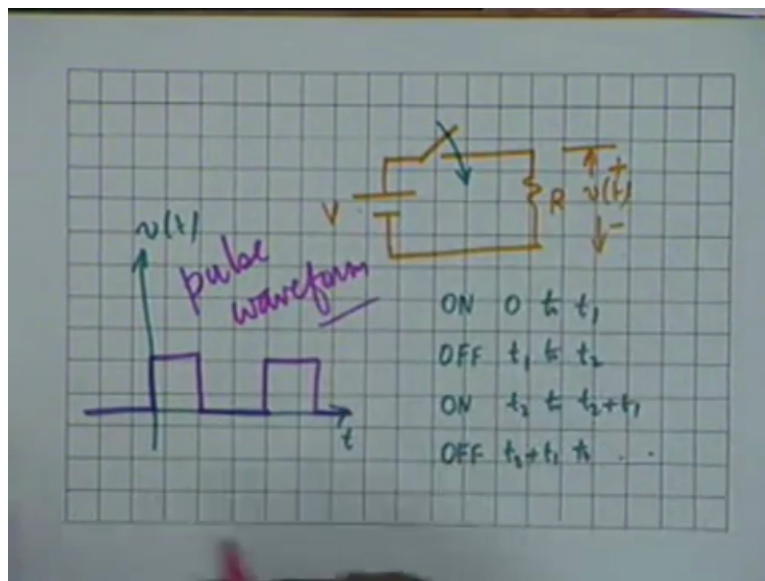 V
R
+
v(t)
-
v(t)
pulse
waveform
t
ON 0 to t₁
OFF t₁ to t₂
ON t₂ to t₂+t₁
OFF t₂+t₁ to . .